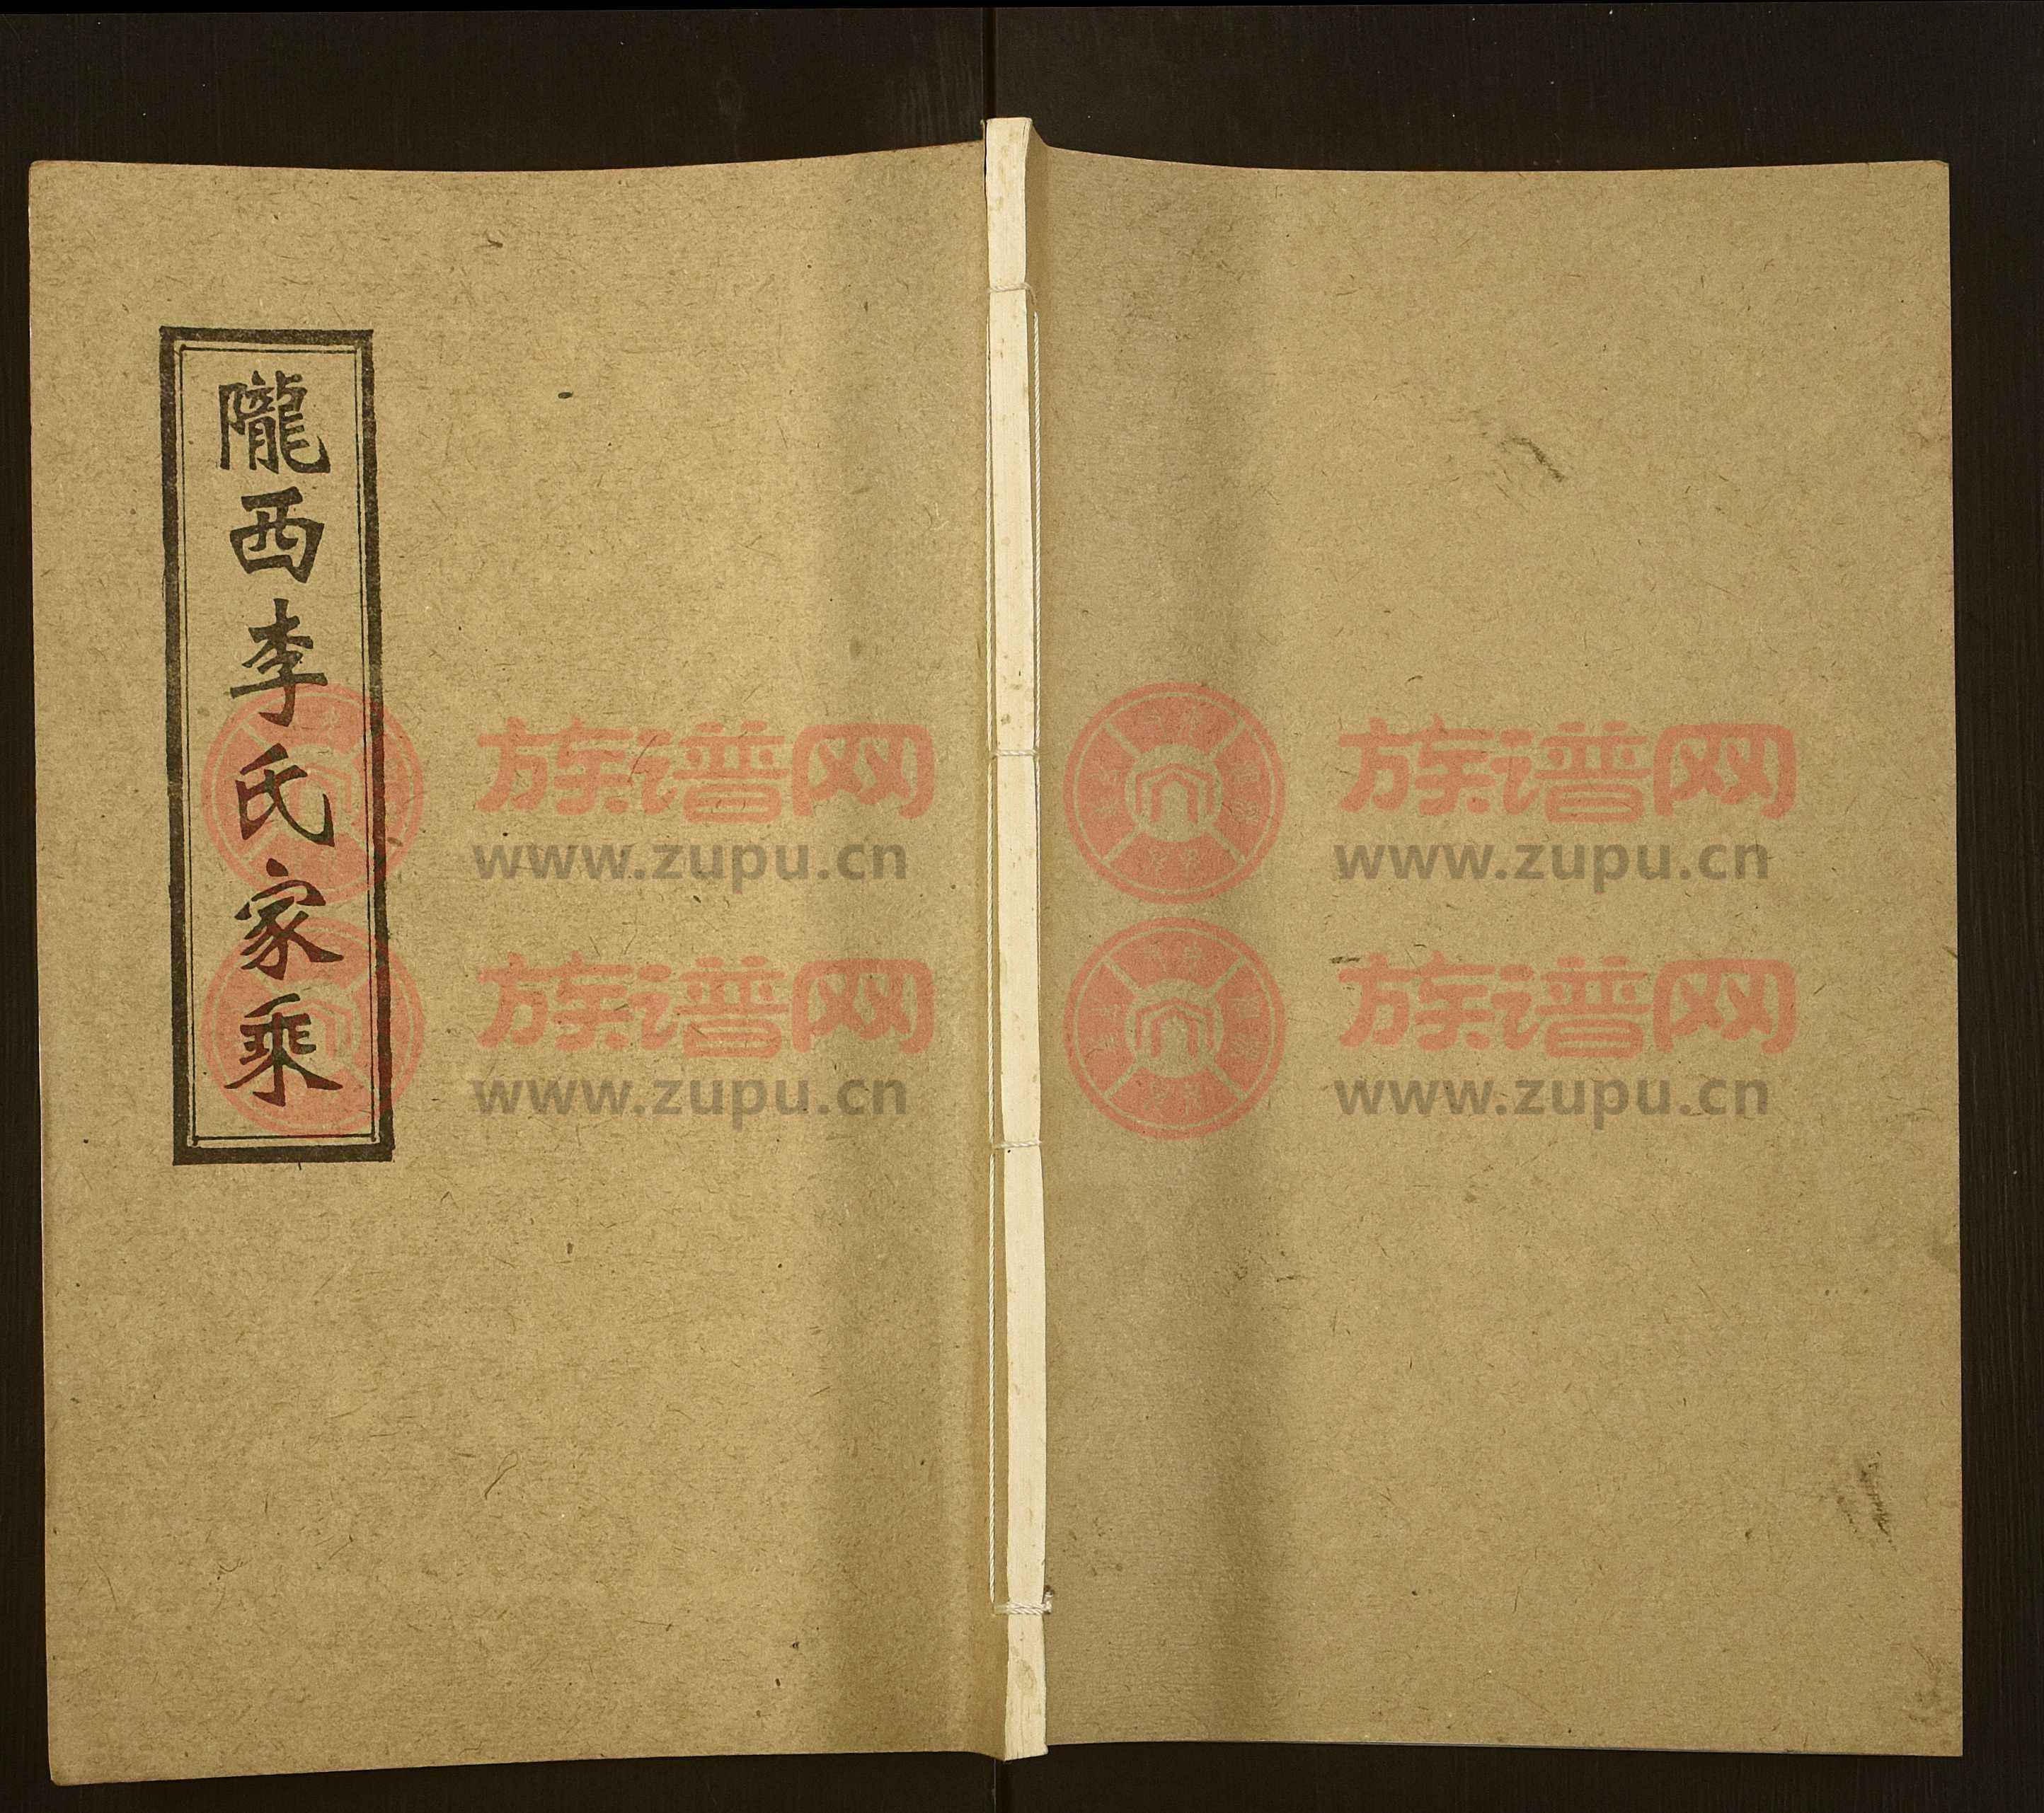 隴西李氏家乘
族谱网
www.zupu.cn
族谱网
www.zupu.cn
族谱网
www.zupu.cn
族谱网
www.zupu.cn